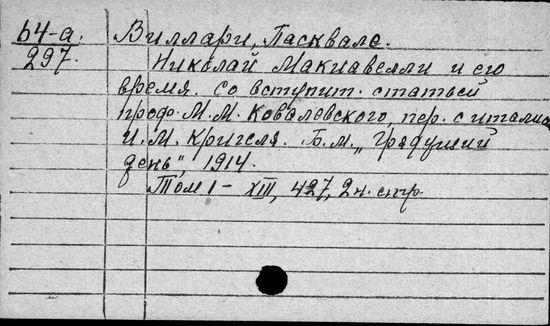 64-а. Виллари, Пасквале.
297. Николай Макиавелли и его
время. со вступит. статьей
проф. М. М. Ковалевского, пер. с италиа
И. М. Кригеля. Б. м., „Грядущий
день", 1914.
Том 1 – XIII, 427, 2 н. стр.